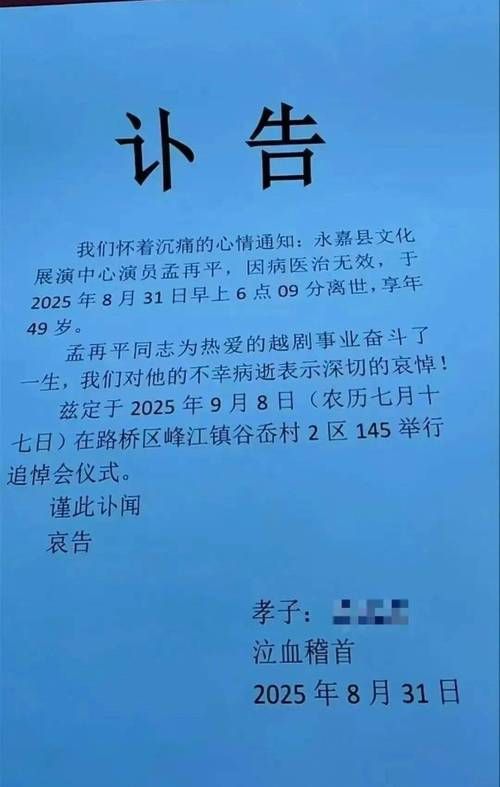 讣告
我们怀着沉痛的心情通知：永嘉县文化
展演中心演员孟再平，因病医治无效，于
2025年8月31日早上6点09分离世，享年
49岁。
孟再平同志为热爱的越剧事业奋斗了
一生，我们对他的不幸病逝表示深切的哀悼！
兹定于2025年9月8日（农历七月十
七日）在路桥区峰江镇谷岙村2区145举行
追悼会仪式。
谨此讣闻
哀告
孝子：
泣血稽首
2025年8月31日